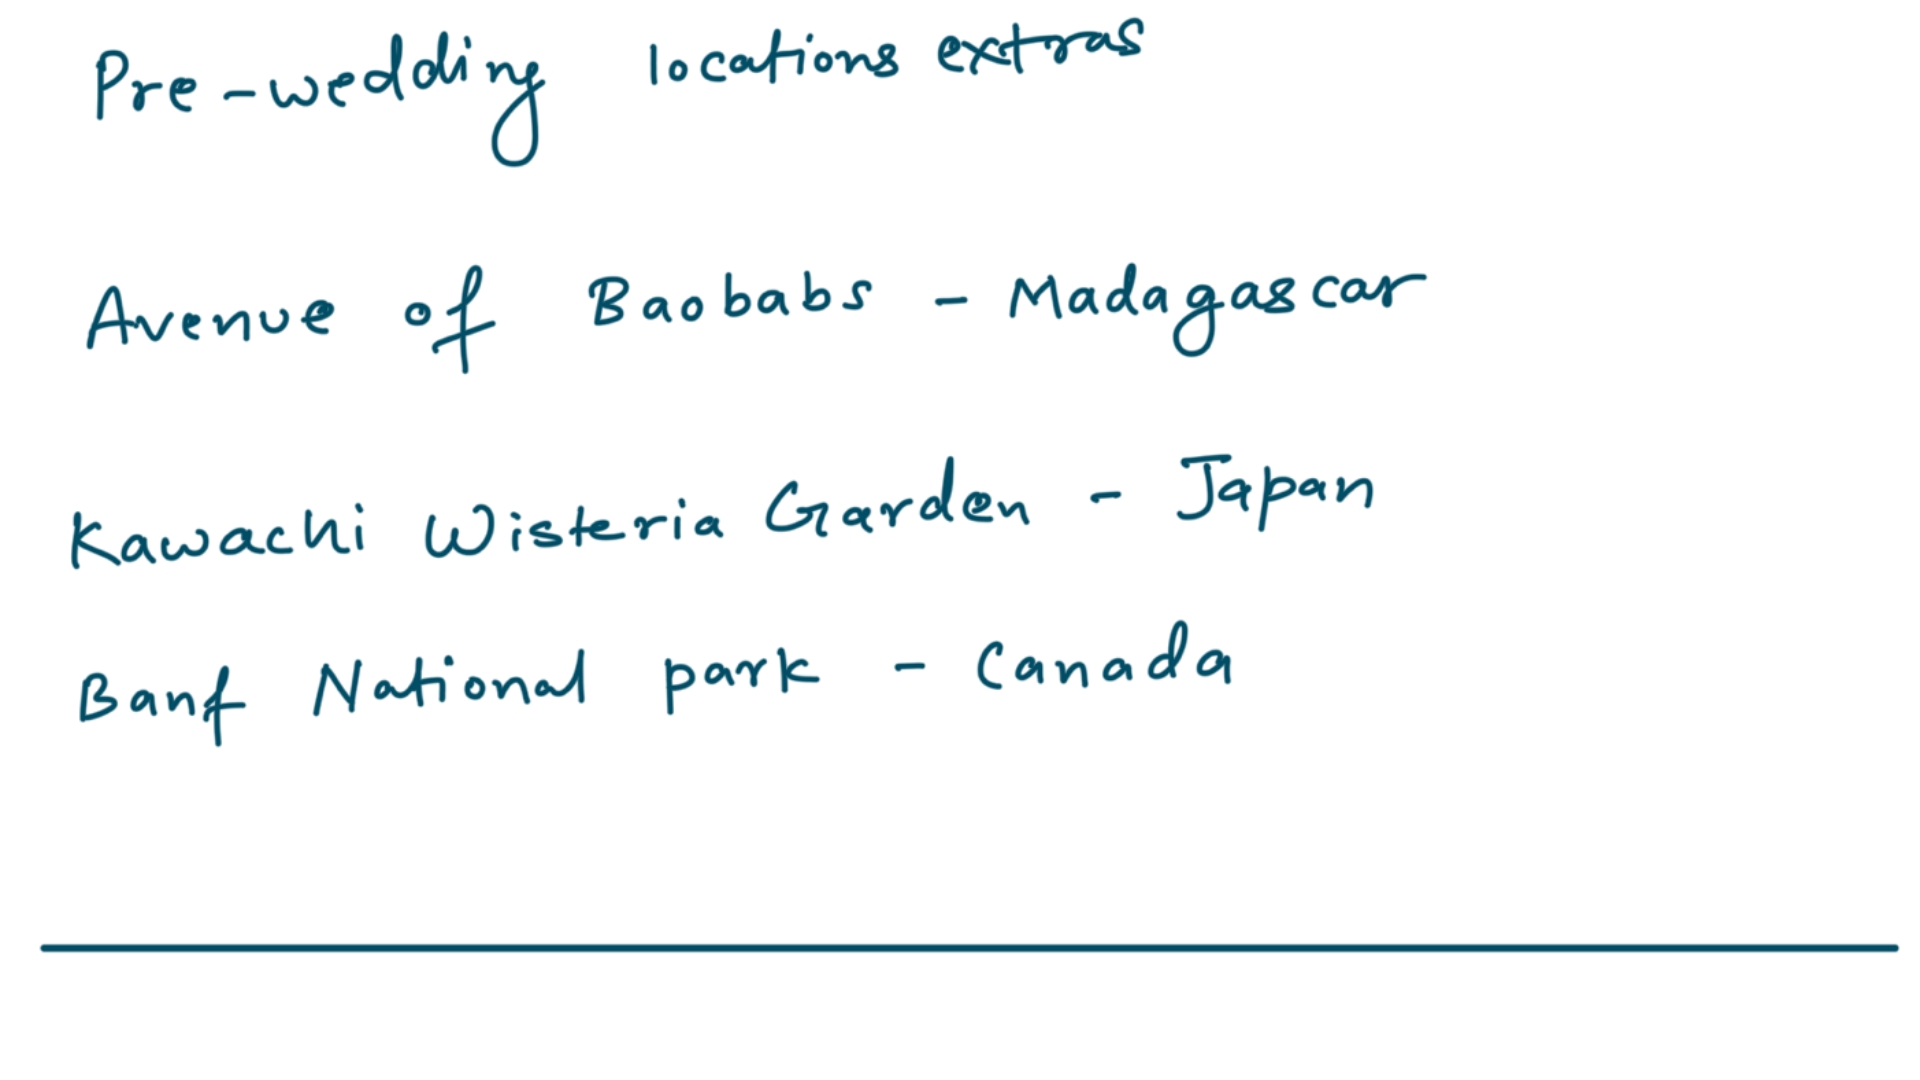 Pre-wedding locations extras
Avenue of Baobabs - Madagascar
Kawachi Wisteria Garden - Japan
Banf National park - Canada